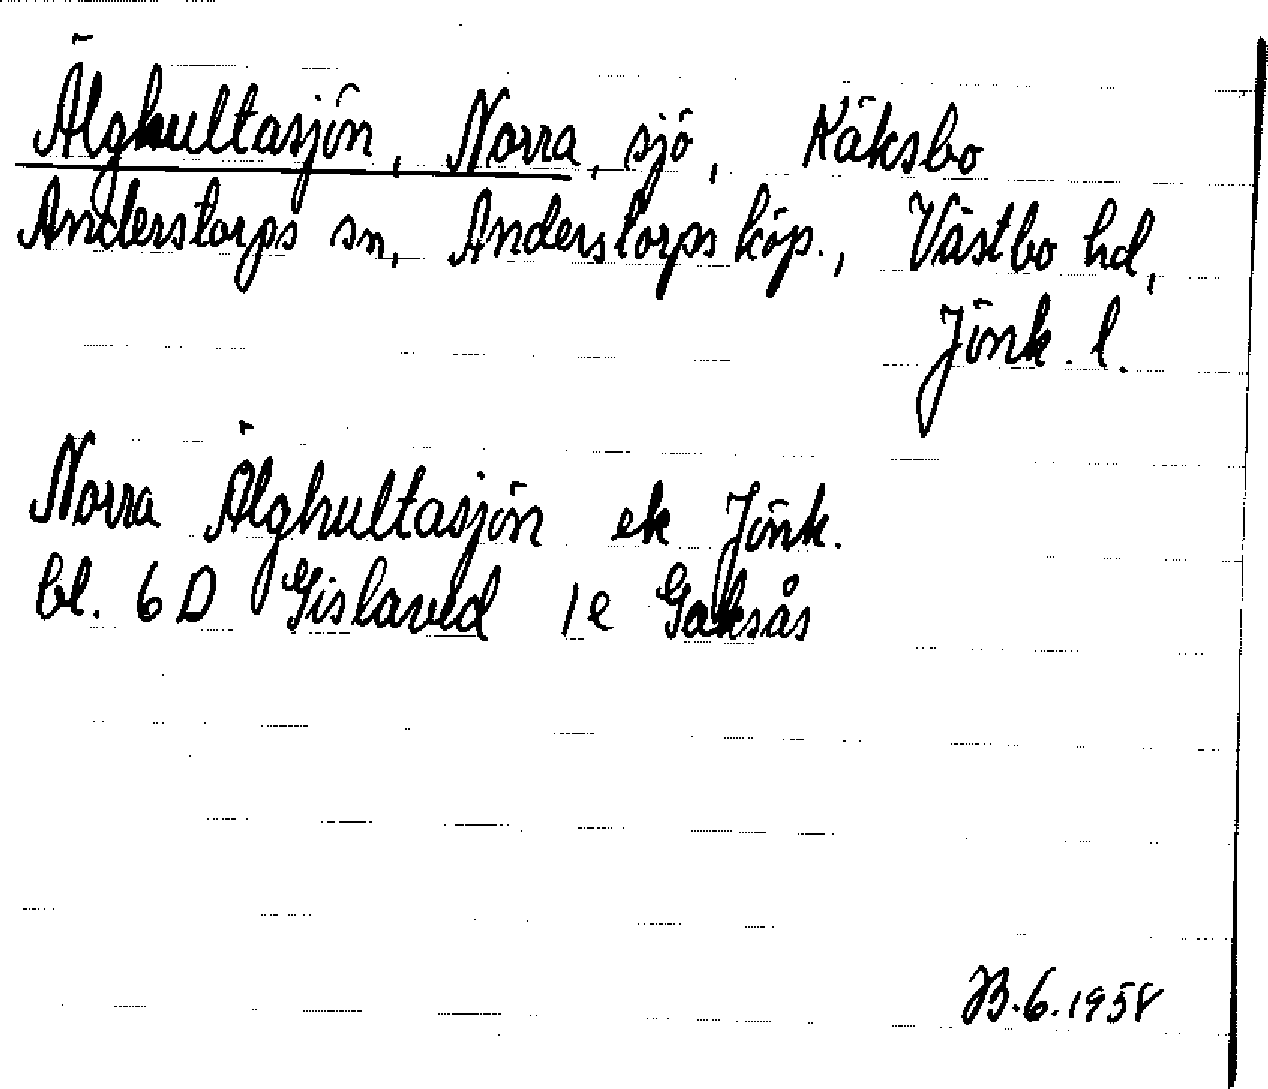 Älghultasjön, Norra, sjö, Käksbo
Anderstorps sn, Anderstorps köp., Västbo hd,
Jönk. l.
Norra Älghultasjön ek Jönk.
bl. 6 D Gislaved 1e Gaksås
6.1958